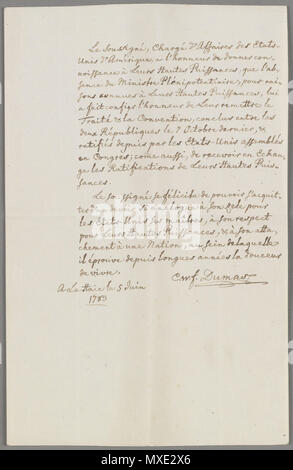 Le Soussigné, Chargé d'Affaires des Etats-
Unis d'Amérique, a l'honneur de donner con-
noissance à Leurs Hautes Puissances, que l'ab-
sence du Ministre Plénipotentiaire, pour rai-
sons connues à Leurs Hautes Puissances, lui
a fait confier l'honneur de Leur remettre le
Traité & la Convention, conclus entre les
deux Républiques le 7 Octobre dernier, &
ratifiés depuis par les Etats-Unis assemblés
en Congrès; come aussi, de recevoir en échan-
ge les Ratifications de Leurs Hautes Puis-
sances.
Le Soussigné se félicite de pouvoir s'acquit-
ter à son zele pour
les Etats-Unis à son respect
pour Leurs Hautes Puissances, & à son atta-
chement à une Nation, au sein de laquelle
il éprouve depuis longues années la douceur
de vivre.
C.w.f. Dumas
A La Haie le 5 Juin
1783
alamy
alamy stock photo
MXE2X6
www.alamy.com